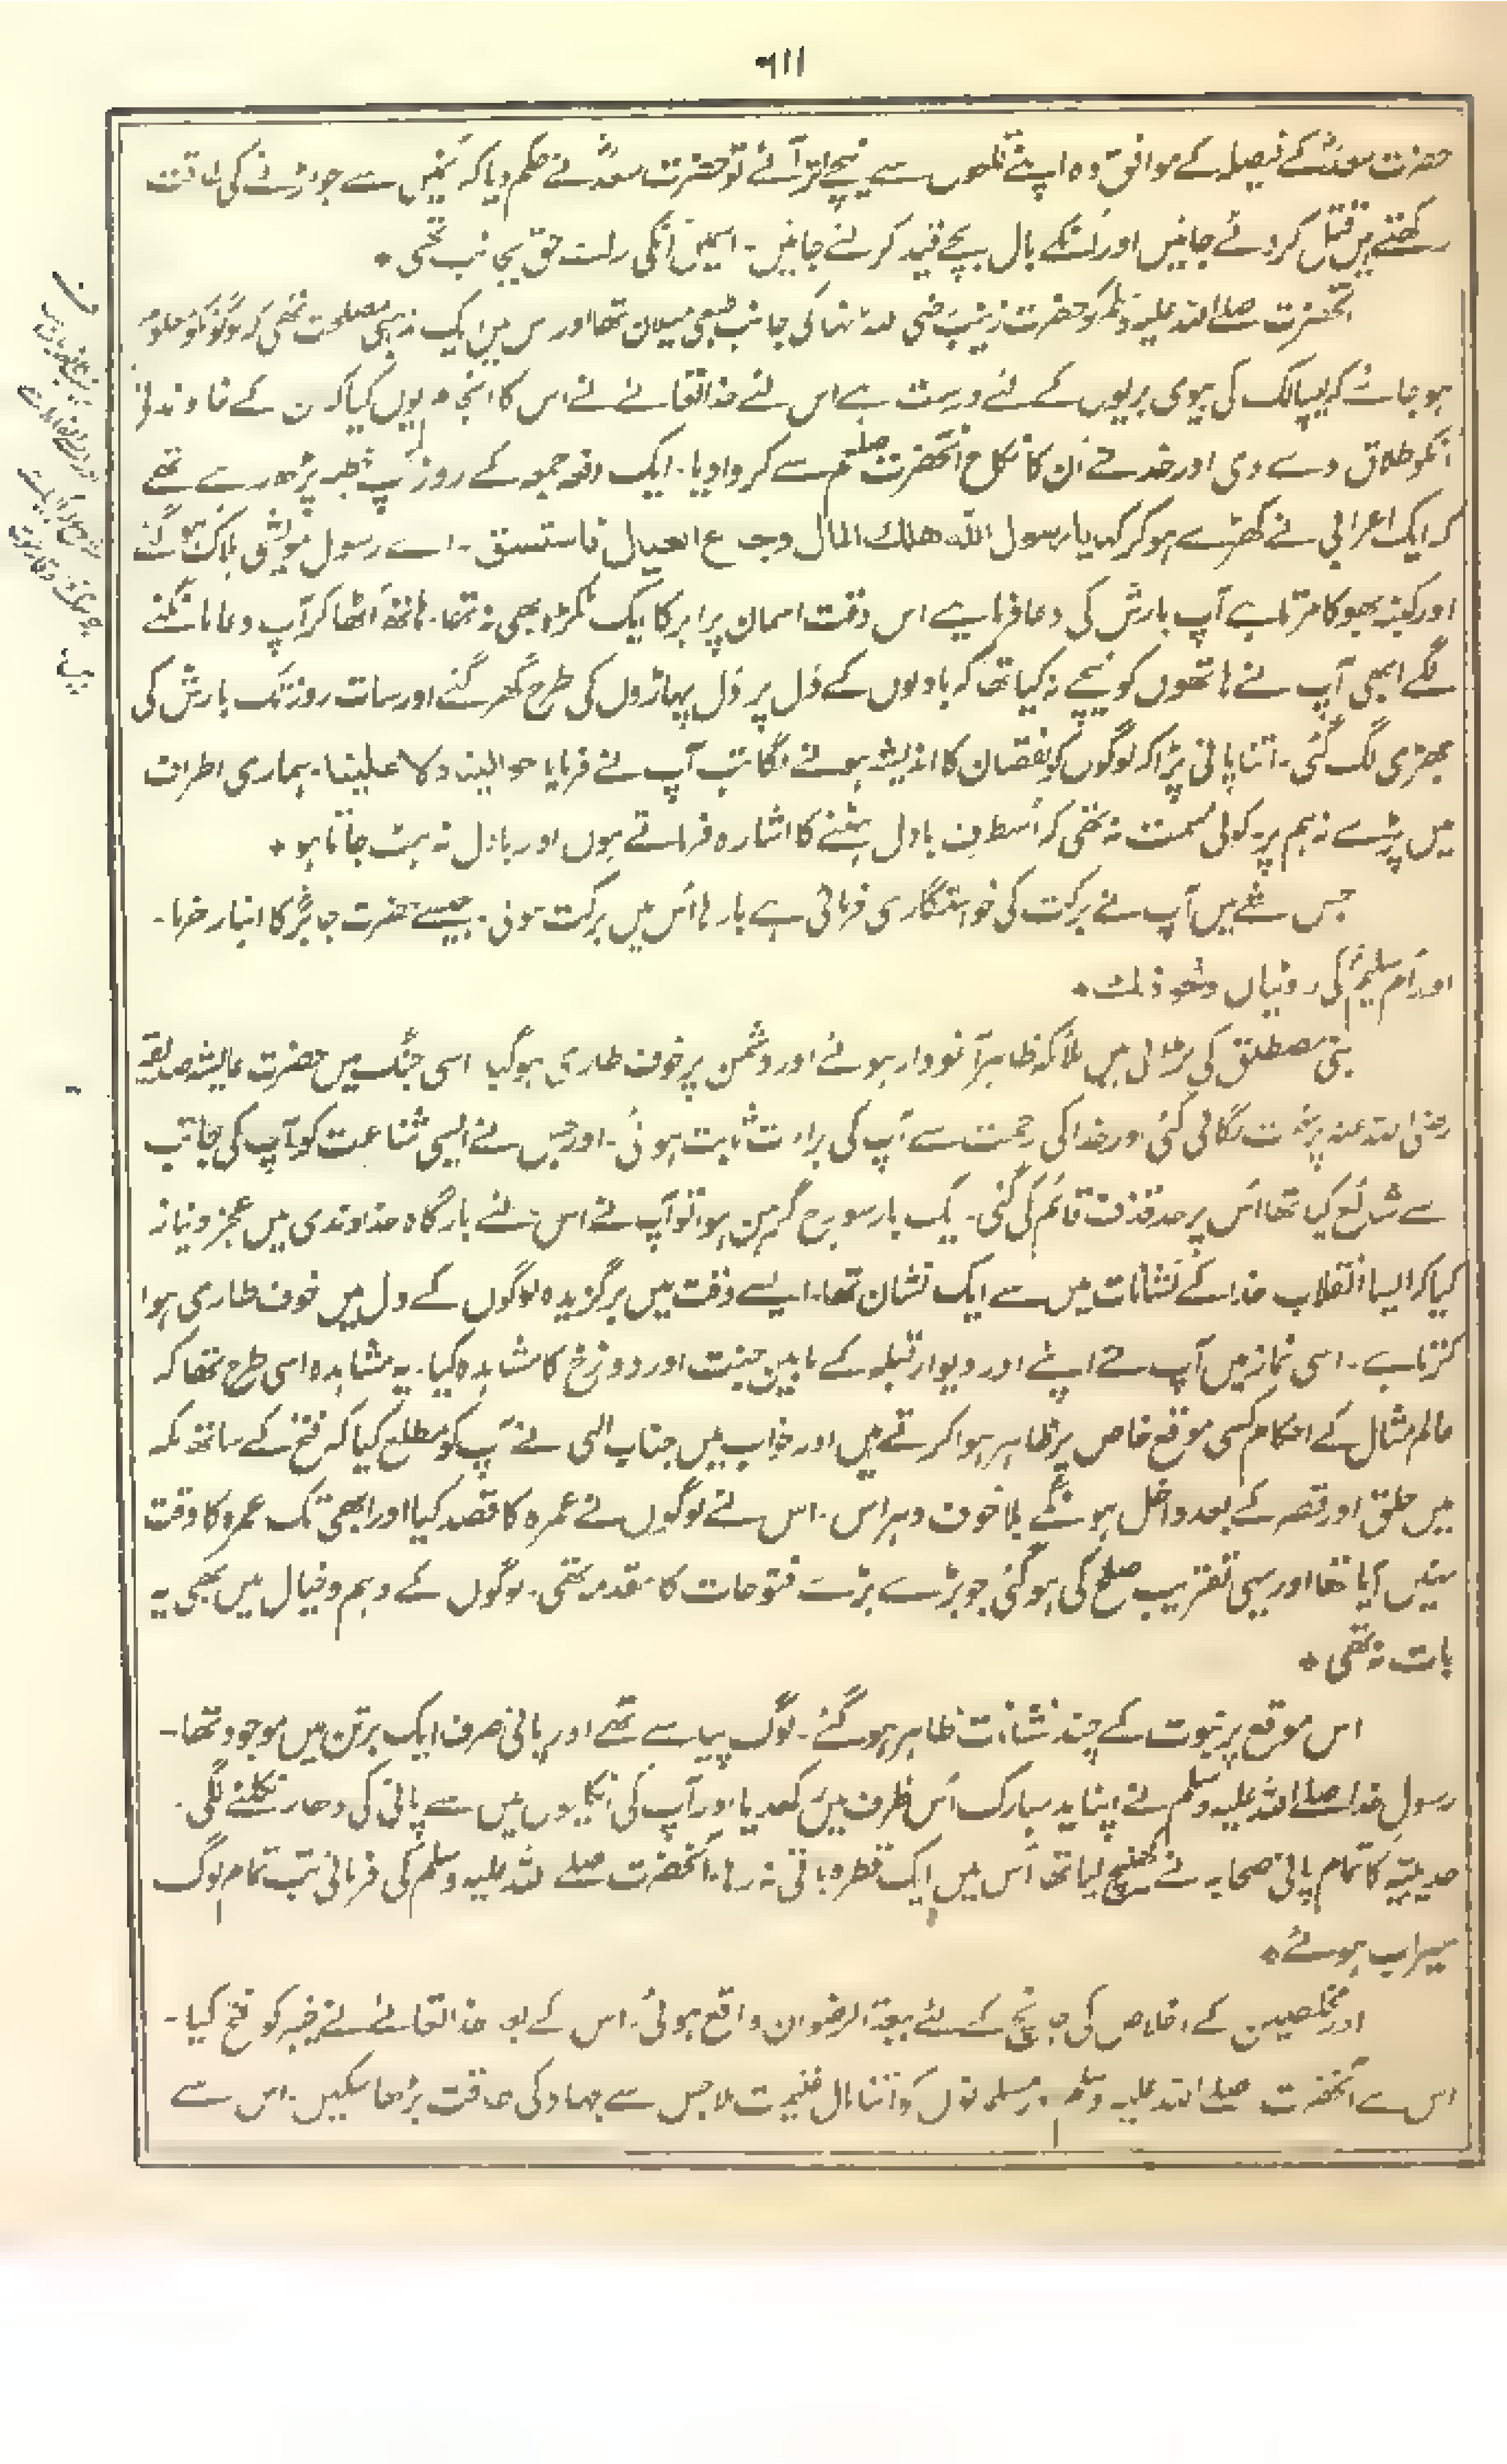 ۶۱۱
حضرت سعدؓ کے فیصلہ کے موافق وہ اپنے قلعوں سے نیچے اتر آئے تو حضرت سعدؓ نے حکم دیا کہ نہیں سے جو لڑنے کی طاقت
رکھتے ہیں قتل کر دئے جائیں اور اُنکے بال بچے قید کر لئے جائیں۔ اسمیں اُنکی رائے حق بجانب تھی *
آنحضرت صلے اللہ علیہ وسلم کو حضرت زینب رضی اللہ عنہا کی جانب طبعی میلان تھا اور اس میں ایک مذہبی مصلحت تھی کہ لوگونکو معلوم
ہو جائے کہ لیپالک کی بیوی مربیوں کے لئے درست ہے اس لئے خدا تعالےٰ نے اس کا انجام یوں کیا کہ ان کے خاوند نے
اُنکو طلاق دے دی اور خدا نے اُن کا نکاح آنحضرت صلعم سے کروا دیا۔ ایک دفعہ جمعہ کے روز آپ خطبہ پڑھ رہے تھے
کہ ایک اعرابی نے کھڑے ہو کر کہا یا رسول اللہ ھلك المال وجاع العیال فاستسق۔ اے رسول مویشی ہلاک ہو گئے
اور کنبہ بھوکا مرتا ہے آپ بارش کی دعا فرمایے اس وقت اسمان پر ابر کا ایک ٹکڑا بھی نہ تھا۔ ہاتھ اُٹھا کر آپ دعا مانگنے
لگے ابھی آپ نے ہاتھوں کو نیچے نہ کیا تھا کہ بادلوں کے دَل پر دَل پہاڑوں کی طرح گھر گئے اور سات روز تک بارش کی
جھڑی لگ گئی۔ اتنا پانی پڑا کہ لوگوں کو نقصان کا اندیشہ ہونے لگا تب آپ نے فرمایا حوالینا ولا علینا۔ ہماری اطراف
میں پڑے نہ ہم پر۔ کوئی سمت نہ تھی کہ اُسطرف بادل ہٹنے کا اشارہ فرماتے ہوں اور بادل نہ ہٹ جاتا ہو *
جس شئے میں آپ نے برکت کی خواستگاری فرمائی ہے بارہا اُس میں برکت ہوئی۔ جیسے حضرت جابرؓ کا انبار خرما۔
اور اُم سلیمؓ کی روٹیاں ونحو ذلك *
بنی مصطلق کی لڑائی میں ملائکہ ظاہراً نمودار ہوئے اور دشمن پر خوف طاری ہو گیا اسی جنگ میں حضرت عایشہ صدیقہ
رضی اللہ عنہ پر تہمت لگائی گئی اور خدا کی رحمت سے آپ کی براءت ثابت ہوئی۔ اور جس نے ایسی شناعت کو آپ کی جانب
سے شائع کیا تھا اُس پر حد قذف قائم کی گئی۔ ایک بار سورج گرہن ہوا تو آپ نے اس لئے بارگاہ خداوندی میں عجز و نیاز
کیا کہ ایسا انقلاب خدا کے نشانات میں سے ایک نشان تھا۔ ایسے وقت میں برگزیدہ لوگوں کے دل میں خوف طاری ہوا
کرتا ہے۔ اسی نماز میں آپ نے اپنے اور دیوار قبلہ کے مابین جنت اور دوزخ کا مشاہدہ کیا۔ یہ مشاہدہ اسی طرح تھا کہ
عالم مثال کے احکام کسی موقع خاص پر ظاہر ہوا کرتے ہیں اور خواب میں جناب الہی نے آپ کو مطلع کیا کہ فتح کے ساتھ مکہ
میں حلق اور قصر کے بعد داخل ہونگے بلا خوف و ہراس۔ اس لئے لوگوں نے عمرہ کا قصد کیا اور ابھی تک عمرہ کا وقت
نہیں آیا تھا اور یہی تقریب صلح کی ہو گئی جو بڑے بڑے فتوحات کا مقدمہ تھی۔ لوگوں کے وہم و خیال میں بھی یہ
بات نہ تھی *
اس موقع پر نبوت کے چند نشانات ظاہر ہو گئے۔ لوگ پیاسے تھے اور پانی صرف ایک برتن میں موجود تھا۔
رسول خدا صلے اللہ علیہ وسلم نے اپنا ید مبارک اُس ظرف میں رکھدیا اور آپ کی انگلیوں میں سے پانی کی دھار نکلنے لگی۔
حدیبیہ کا تمام پانی صحابہ نے کھینچ لیا تھا اُس میں ایک قطرہ باقی نہ رہا۔ آنحضرت صلے اللہ علیہ وسلم کی فرمائی تب تمام لوگ
سیراب ہوئے *
اور مخلصین کے اخلاص کی جانچ کے لئے بیعۃ الرضوان واقع ہوئی۔ اس کے بعد خدا تعالےٰ نے خیبر کو فتح کیا۔
اس سے آنحضرت صلے اللہ علیہ وسلم اور مسلمانوں کو اتنا مال غنیمت ملا جس سے جہاد کی طاقت بڑھا سکیں۔ اس سے